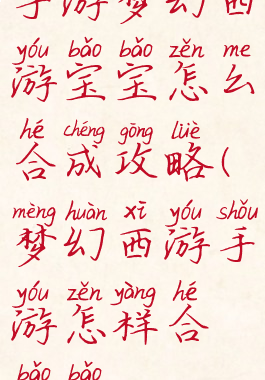 手游梦幻西
yóu bǎo bǎo zěn me
游宝宝怎么
hé chéng gōng lüè
合成攻略(
mèng huàn xī yóu shǒu
梦幻西游手
yóu zěn yàng hé
游怎样合
bǎo bǎo